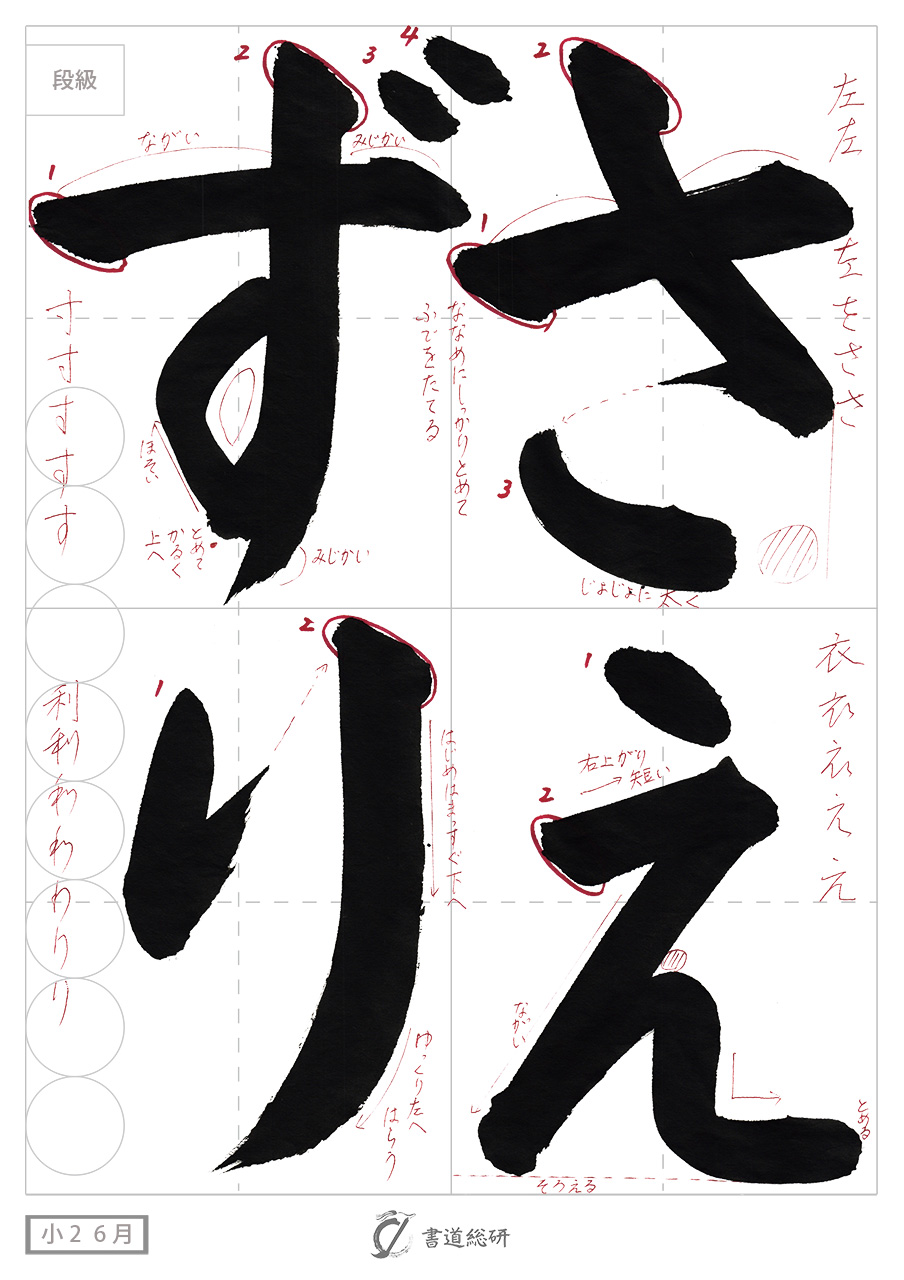 さえ
ずり
左左左をささ
衣衣衣ええ
寸寸すすす
利利わわわりり
段級
1
2
3
ななめにしっかりとめて
ふでをたてる
じょじょに太く
1
2
右上がり
短い
ながい
そろえる
とめる
1
2
3
4
ながい
みじかい
ほそい
とめて
かるく
上へ
みじかい
1
2
はじめはまっすぐ下へ
ゆっくり左へ
はらう
小2 6月
書道総研